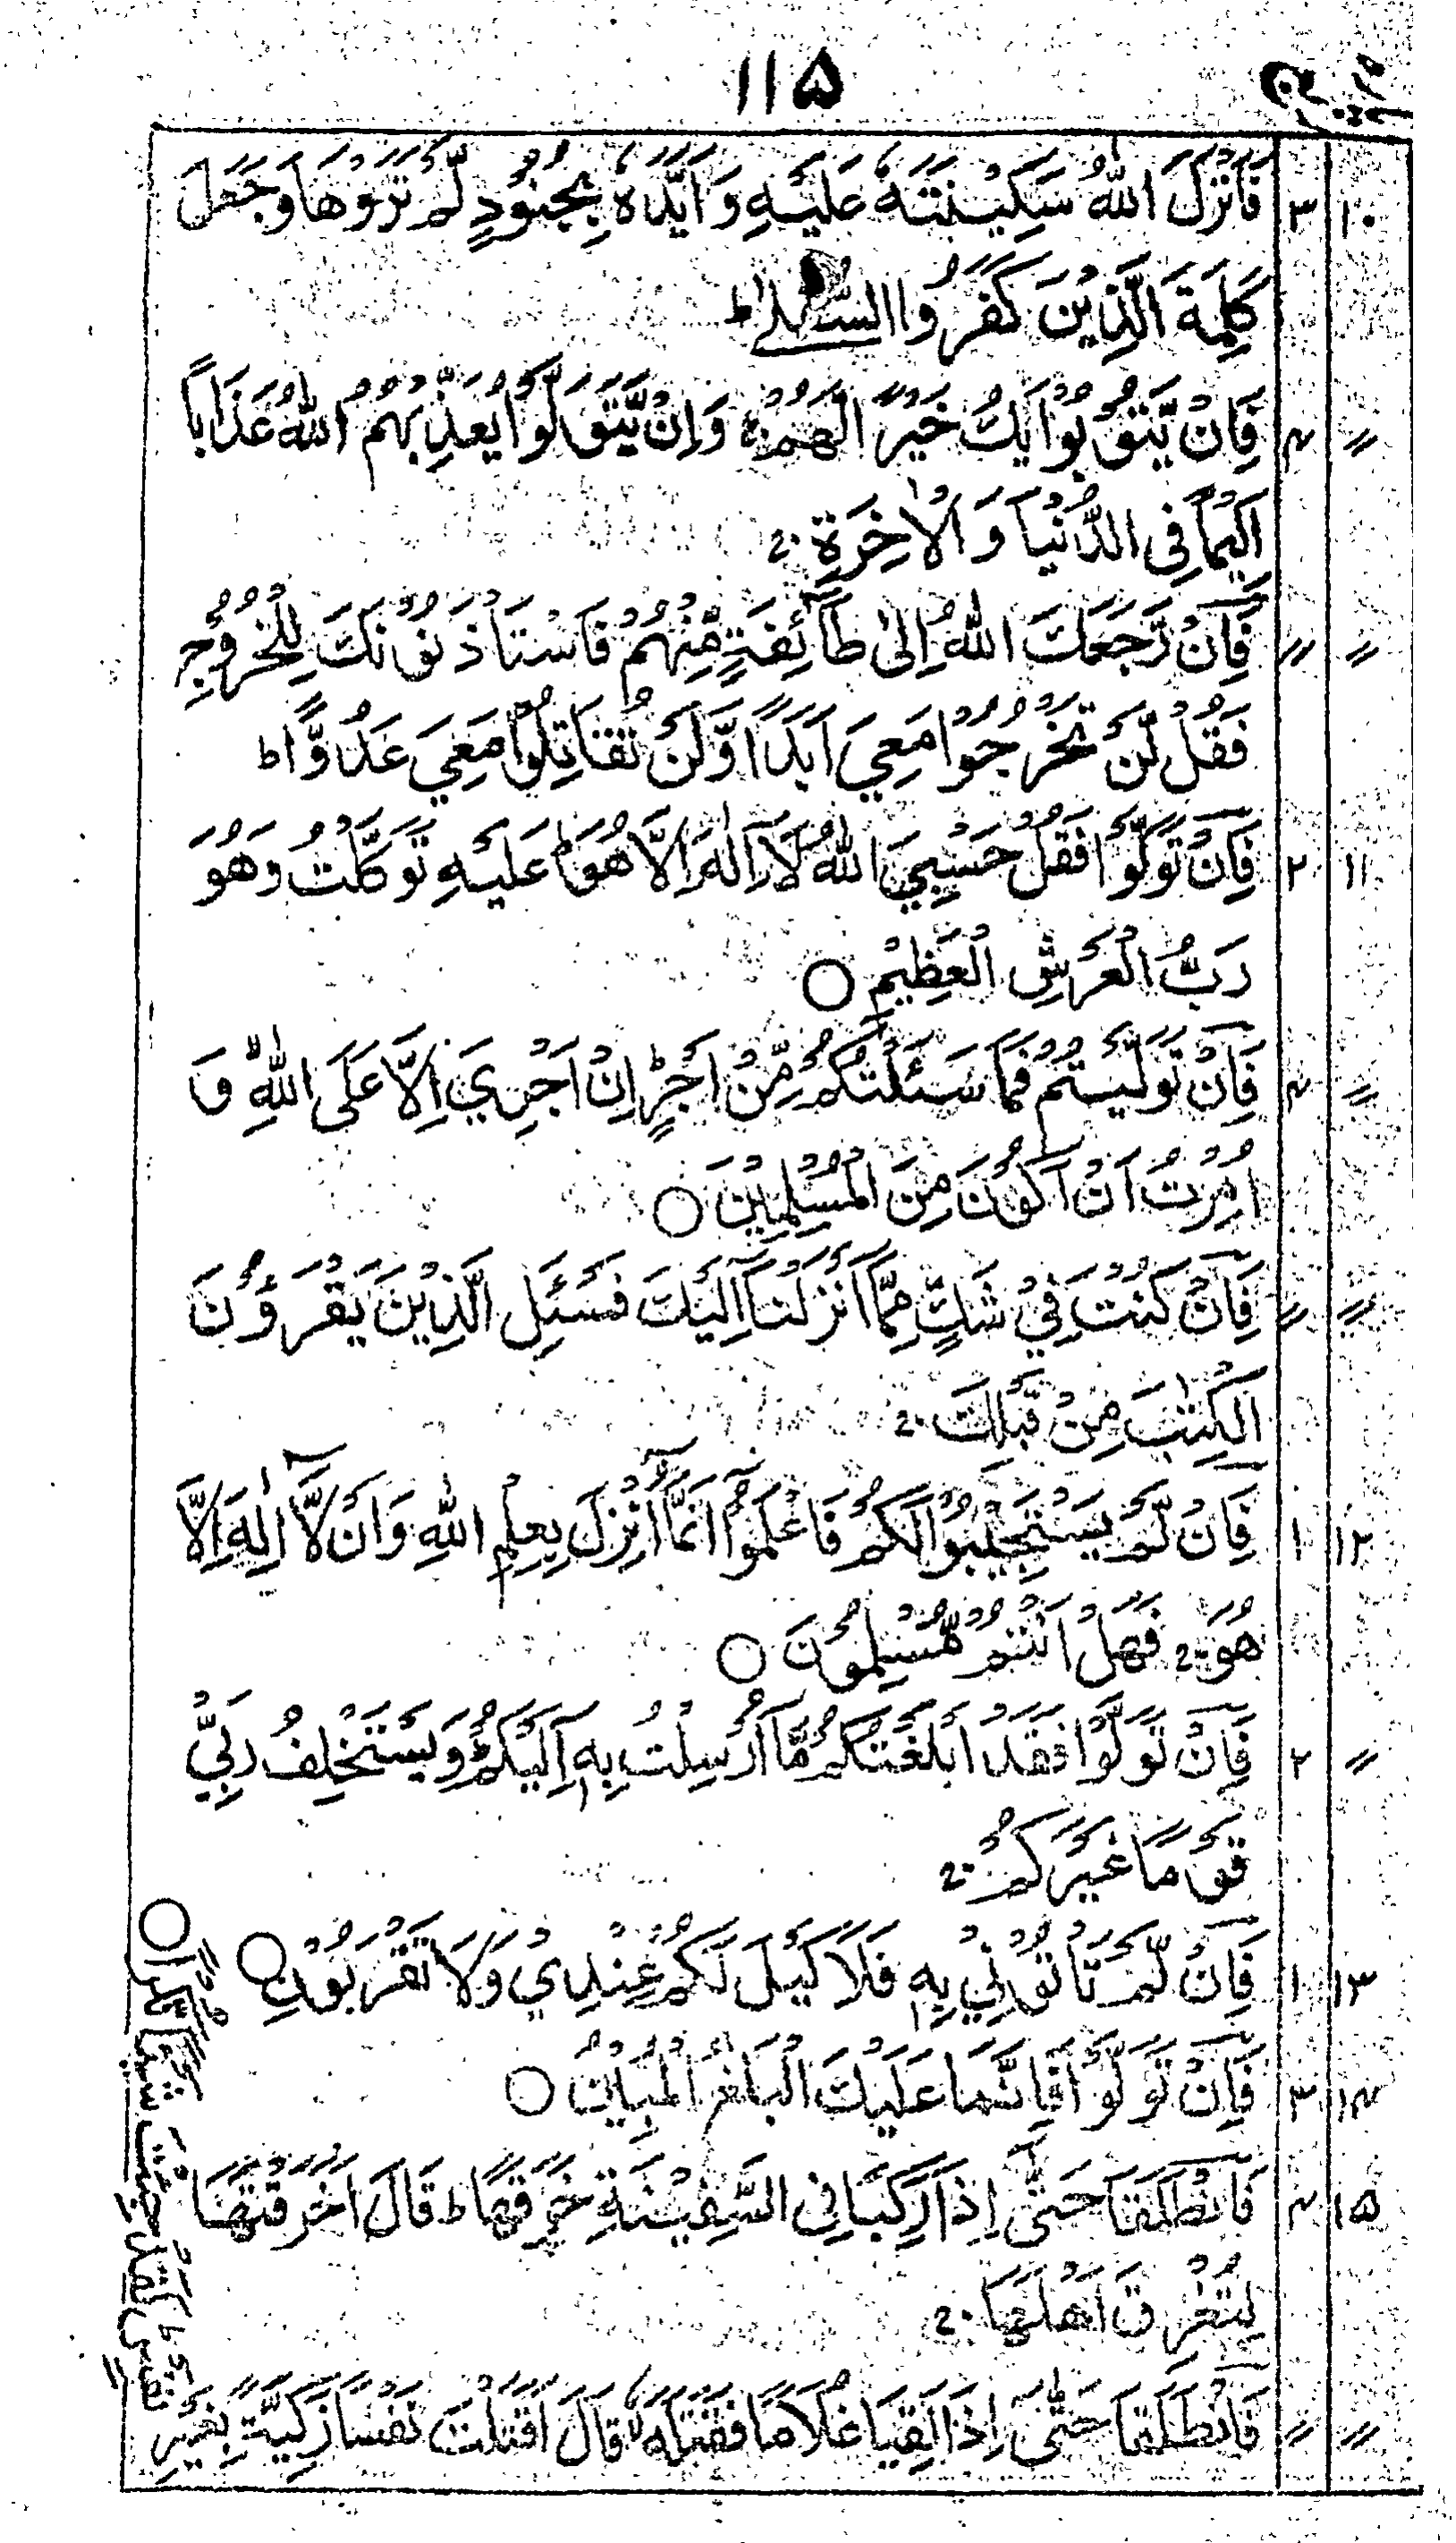 ۱۱۵
۱۰ ۳ فَاَنْزَلَ اللّٰهُ سَكِيْنَتَهٗ عَلَيْهِ وَاَيَّدَهٗ بِجُنُوْدٍ لَّمْ تَرَوْهَا وَجَعَلَ
كَلِمَةَ الَّذِيْنَ كَفَرُوا السُّفْلٰى ط
〃 ۴ فَاِنْ يَّتُوْبُوْا يَكُ خَيْرًا لَّهُمْ ۚ وَاِنْ يَّتَوَلَّوْا يُعَذِّبْهُمُ اللّٰهُ عَذَابًا
اَلِيْمًا فِى الدُّنْيَا وَالْاٰخِرَةِ ۚ
〃 〃 فَاِنْ رَّجَعَكَ اللّٰهُ اِلٰى طَآئِفَةٍ مِّنْهُمْ فَاسْتَاْذَنُوْنَكَ لِلْخُرُوْجِ
فَقُلْ لَّنْ تَخْرُجُوْا مَعِيَ اَبَدًا وَّلَنْ تُقَاتِلُوْا مَعِيَ عَدُوًّا ط
۱۱ ۲ فَاِنْ تَوَلَّوْا فَقُلْ حَسْبِيَ اللّٰهُ لَآ اِلٰهَ اِلَّا هُوَ ط عَلَيْهِ تَوَكَّلْتُ وَهُوَ
رَبُّ الْعَرْشِ الْعَظِيْمِ ○
〃 ۴ فَاِنْ تَوَلَّيْتُمْ فَمَا سَئَلْتُكُمْ مِّنْ اَجْرٍ ط اِنْ اَجْرِيَ اِلَّا عَلَى اللّٰهِ وَ
اُمِرْتُ اَنْ اَكُوْنَ مِنَ الْمُسْلِمِيْنَ ○
〃 〃 فَاِنْ كُنْتَ فِيْ شَكٍّ مِّمَّا اَنْزَلْنَآ اِلَيْكَ فَسْئَلِ الَّذِيْنَ يَقْرَءُوْنَ
الْكِتٰبَ مِنْ قَبْلِكَ ۚ
۱۲ ۱ فَاِنْ لَّمْ يَسْتَجِيْبُوْا لَكُمْ فَاعْلَمُوْٓا اَنَّمَآ اُنْزِلَ بِعِلْمِ اللّٰهِ وَاَنْ لَّآ اِلٰهَ اِلَّا
هُوَ ۚ فَهَلْ اَنْتُمْ مُّسْلِمُوْنَ ○
〃 ۲ فَاِنْ تَوَلَّوْا فَقَدْ اَبْلَغْتُكُمْ مَّآ اُرْسِلْتُ بِهٖٓ اِلَيْكُمْ ط وَيَسْتَخْلِفُ رَبِّيْ
قَوْمًا غَيْرَكُمْ ۚ
۱۳ ۱ فَاِنْ لَّمْ تَاْتُوْنِيْ بِهٖ فَلَا كَيْلَ لَكُمْ عِنْدِيْ وَلَا تَقْرَبُوْنِ ○
۱۴ ۳ فَاِنْ تَوَلَّوْا فَاِنَّمَا عَلَيْكَ الْبَلٰغُ الْمُبِيْنُ ○
۱۵ ۴ فَانْطَلَقَا حَتّٰى اِذَا رَكِبَا فِى السَّفِيْنَةِ خَرَقَهَا ط قَالَ اَخَرَقْتَهَا
لِتُغْرِقَ اَهْلَهَا ۚ
〃 〃 فَانْطَلَقَا حَتّٰى اِذَا لَقِيَا غُلَامًا فَقَتَلَهٗ قَالَ اَقَتَلْتَ نَفْسًا زَكِيَّةً بِغَيْرِ
نَفْسٍ ط لَقَدْ جِئْتَ شَيْئًا نُّكْرًا ○